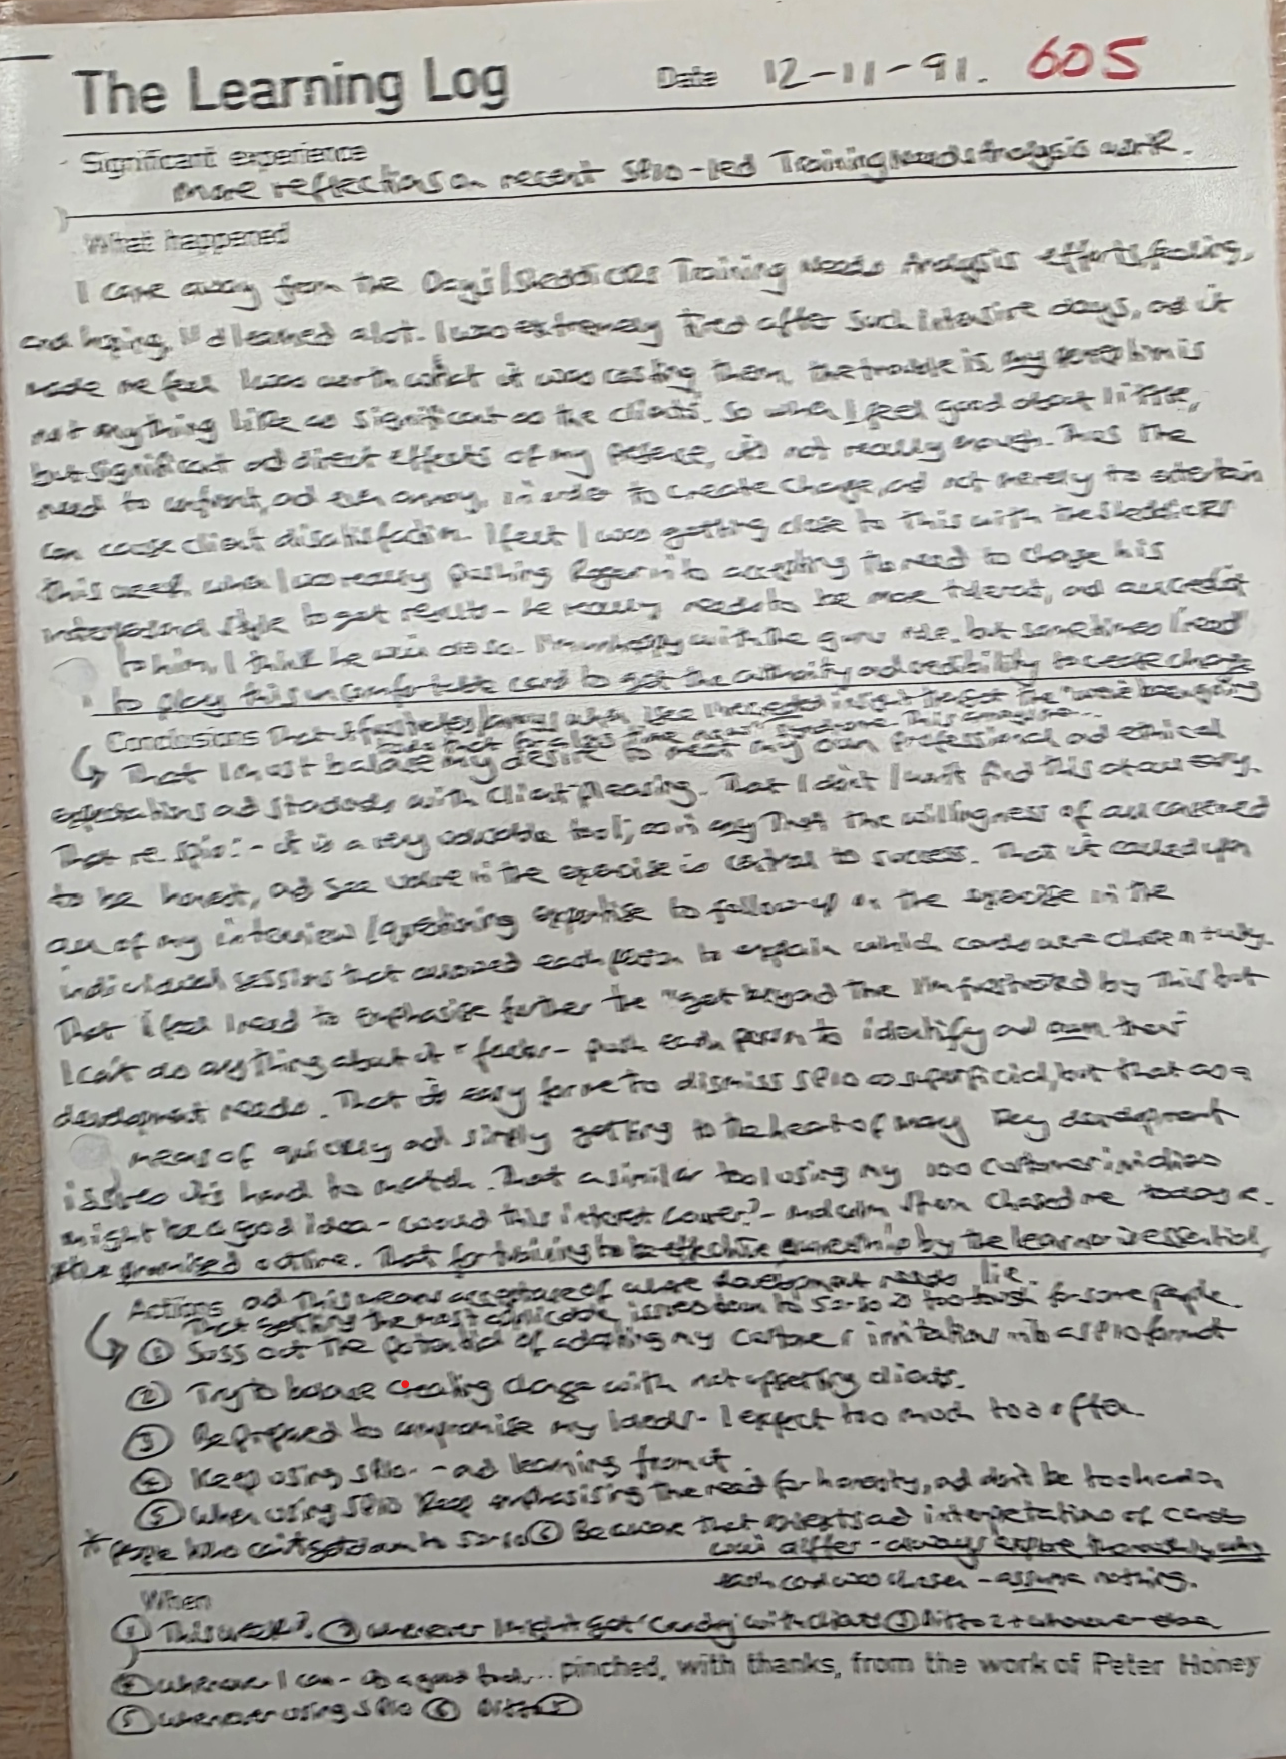 The Learning Log Date 12-11-91. 605
Significant experience
More reflections on recent SP10-led Training Needs Analysis work.
What happened
I came away from the Training Needs Analysis efforts, feeling,
and hoping, I'd learned a lot. I was extremely tired after such intensive days, and it
made me feel I was worth what it was costing them, the trouble is, my is
not anything like as significant as the clients. So when I feel good about little,
but significant and direct effects of my presence, it's not really enough. Thus the
need to confront, and even annoy, in order to create change, and not merely to entertain
can cause client dissatisfaction. I feel I was getting close to this with the
this week when I was really pushing Roger into accepting the need to change his
interpersonal style to get results - he really needs to be more tolerant, and all credit
to him, I think he will do so. I'm unhappy with the guru role, but sometimes I need
to play this uncomfortable card to get the authority and credibility to cause change
Conclusions That it frustrates/annoys when, like insight the
That I must balance my desire to meet my own professional and ethical
expectations and standards with client pleasing. That I don't/won't find this at all easy.
That re. SP10:- it is a very valuable tool; that the willingness of all concerned
to be honest, and see value in the exercise is central to success. That it called upon
all of my interview/questioning expertise to follow-up on the exercise in the
individual sessions that allowed each person to explain which cards were chosen & why.
That I feel I need to emphasise further the "get beyond the I'm frustrated by this but
I can't do anything about it" factor - push each person to identify and own their
development needs. That it's easy for me to dismiss SP10 as superficial, but that as a
means of quickly and simply getting to the heart of many key development
issues it's hard to match. That a similar tool using my 100 customer
might be a good idea - would this interest Gower? - Malcolm chased me today re.
the promised outline. That for training to be effective ownership by the learner is essential,
Actions and this means acceptance of where development needs lie.
That getting the most applicable issues down to is too tough for some people.
① Suss out the potential of adapting my customer irritations into a SP10 format
② Try to balance creating change with not upsetting clients.
③ Be prepared to compromise my ideals - I expect too much too often.
④ Keep using SP10. - and learning from it.
⑤ When using SP10 keep emphasising the need for honesty, and don't be too hard on
* people who can't get down to ⑥ Be aware that and interpretations of cards
will differ - always explore thoroughly why
each card was chosen - assume nothing.
When
① This week? ② Whenever I might get with clients ③ Ditto 2 + whenever else
④ Whenever I can - it's a good tool... pinched, with thanks, from the work of Peter Honey
⑤ Whenever using SP10 ⑥ Ditto 5